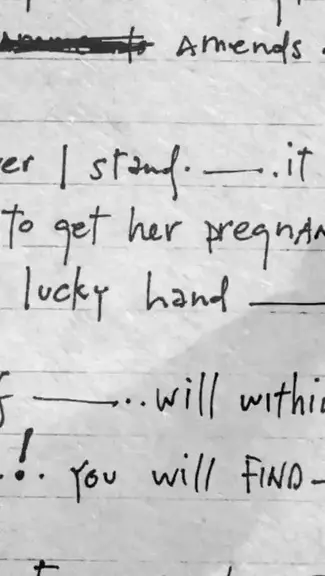 Amends.
er I stand. —. it
to get her pregnan
lucky hand —
—.. will withi
.!. You will FIND—